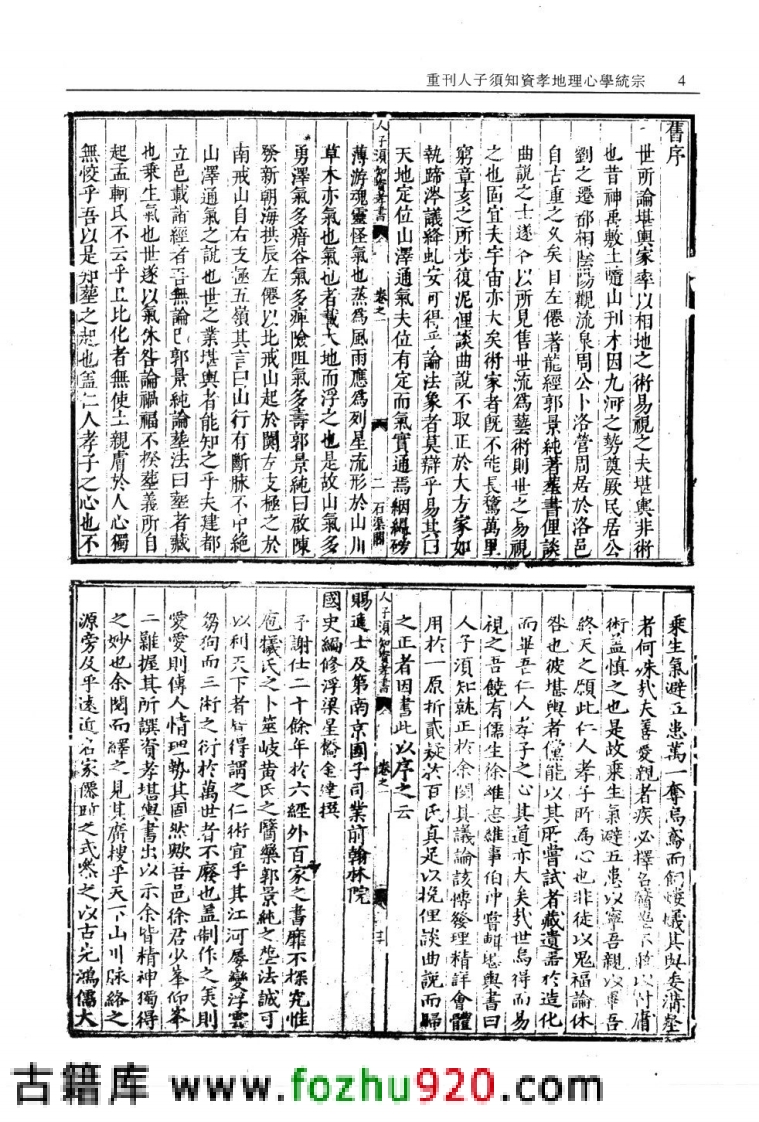 重刊人子須知資孝地理心學統宗 4
舊序
世所論堪輿家率以相地之術易視之夫堪輿非術
也昔神禹敷土隨山刊木因九河之勢奠厥民居公
劉之遷邰相陰陽觀流泉周公卜洛營周居於洛邑
自古重之久矣自左僊著龍經郭景純著葬書俚談
曲說之士遂各以所見售世流爲藝術則世之易視
之也固宜夫宇宙亦大矣術家者旣不能長驚萬里
窮章亥之所步復泥俚談曲說不取正於大方家如
執蹄涔議絳虬安可得乎論法象者莫辯乎易其曰
天地定位山澤通氣夫位有定而氣實通焉絪縕磅
人子須知資孝書 卷之一 二 石渠閣
薄游魂靈怪氣也蒸爲風雨應爲列星流形於山川
草木亦氣也氣也者載大地而浮之也是故山氣多
勇澤氣多瘖谷氣多痺險阻氣多壽郭景純曰敬陳
發新朝海拱辰左僊以北戒山起於關左支極之於
南戒山自右支極五嶺其言曰山行有斷脉不中絶
山澤通氣之說也世之業堪輿者能知之乎夫建都
立邑載諸經者吾無論已郭景純論塟法曰塟者藏
也乘生氣也世遂以氣休咎論禍福不揆塟義所自
起孟軻氏不云乎且比化者無使土親膚於人心獨
無恔乎吾以是知塟之起也盖仁人孝子之心也不
乘生氣避五患萬一奪烏鳶而飼螻蟻其與委溝壑
者何殊㢤夫善愛親者疾必擇名醫
術盖慎之也是故乘生氣避五患以寧吾親以畢吾
終天之願此仁人孝子所爲心也非徒以鬼福論休
咎也彼堪輿者儻能以其所嘗試者藏遺畚於造化
而畢吾仁人孝子之心其道亦大矣㢤世烏得而易
視之吾饒有儒生徐維志維事伯仲嘗輯堪輿書曰
人子須知就正於余閱其議論該博發理精詳會體
用於一原折貳疑於百氏真足以挽俚談曲說而歸
之正者因書此以序之云
人子須知資孝書 卷之一 三
賜進士及第南京國子司業前翰林院
國史編修浮梁星橋金達撰
予謝仕二十餘年於六經外百家之書靡不探究惟
庖犧氏之卜筮岐黄氏之醫藥郭景純之塟法誠可
以利天下者皆得謂之仁術宜乎其江河屡變浮雲
芻狗而三術之衍於萬世者不廢也盖制作之美則
愛愛則傳人情理勢其固然歟吾邑徐君少峯仰峯
二難握其所譔資孝堪輿書出以示余皆精神獨得
之妙也余閱而繹之見其廣搜乎天下山川脉絡之
源旁及乎遠近名家僊師之式叅之以古先鴻儒大
古籍库 www.fozhu920.com